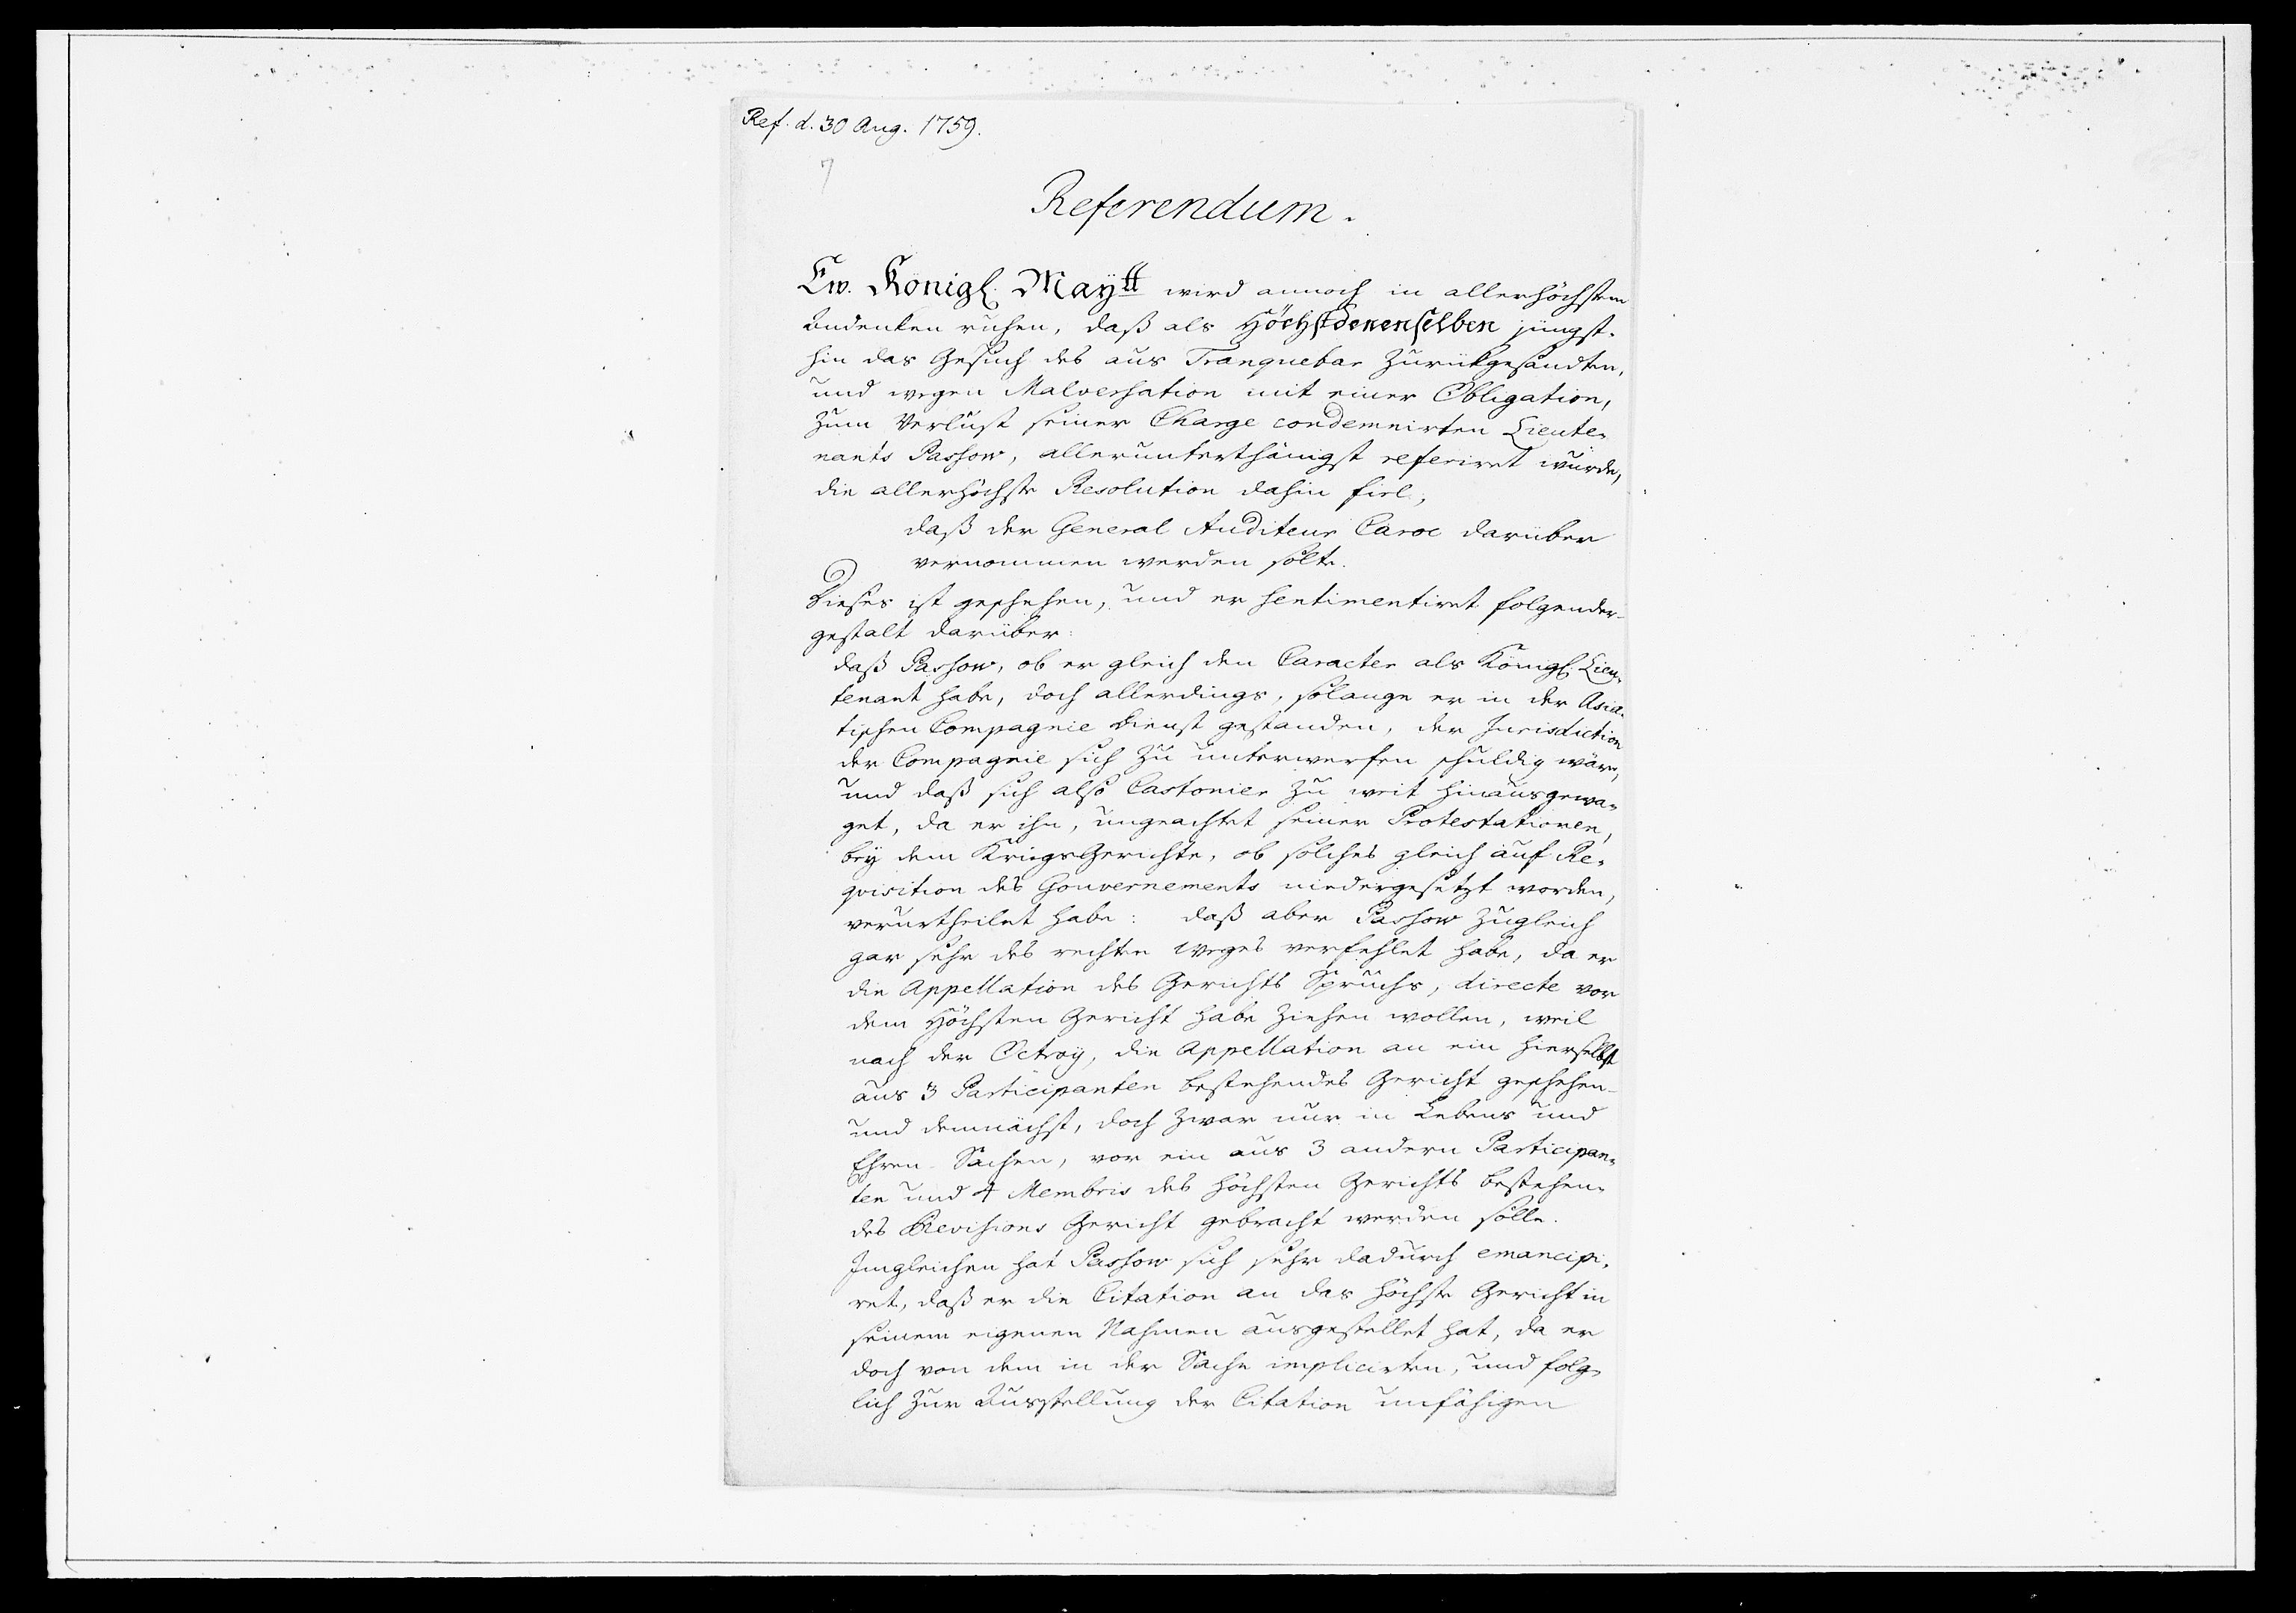 Ref. d. 30 Aug. 1759.
7
Referendum.
Ew. Königl. Maytt wird annoch in allerhöchstem
Andenken ruhen, daß als Höchstdenenselben jüngst-
hin das Gesuch des aus Tranquebar zurückgesandten,
und wegen Malversation mit einer Obligation,
zum Verlust seiner Charge condemnirten Lieute-
nants Passow, allerunterthänigst referiret wurde,
die allerhöchste Resolution dahin fiel,
daß der General Auditeur Caroc darüber
vernommen werden solte.
Dieses ist geschehen, und er sentimentiret folgender-
gestalt darüber:
daß Passow, ob er gleich den Caracter als Königl. Lieu-
tenant habe, doch allerdings, solange er in der Asia-
tischen Compagnie Dienst gestanden, der Jurisdiction
der Compagnie sich zu unterwerfen schuldig wäre,
und daß sich also Castonier zu weit hinausgewa-
get, da er ihn, ungeachtet seiner Protestationen,
bey dem KriegsGerichte, ob solches gleich auf Re-
quisition des Gouvernements niedergesetzt worden,
verurtheilet habe: daß aber Passow zugleich
gar sehr des rechten Weges verfehlet habe, da er
die Appellation des Gerichts Spruchs, directe vor
dem Höchsten Gericht habe ziehen wollen, weil
nach der Octroy, die Appellation an ein hierselbst
aus 3 Participanten bestehendes Gericht geschehen
und demnächst, doch zwar nur in Lebens und
Ehren-Sachen, vor ein aus 3 andern Participan-
ten und 4 Membris des Höchsten Gerichts bestehen-
des Revisions Gericht gebracht werden solle.
Imgleichen hat Passow sich sehr dadurch emancipi-
ret, daß er die Citation an das Höchste Gericht in
seinem eigenen Nahmen ausgestellet hat, da er
doch von dem in der Sache implicirten, und folg-
lich zur Ausstellung der Citation unfähigen